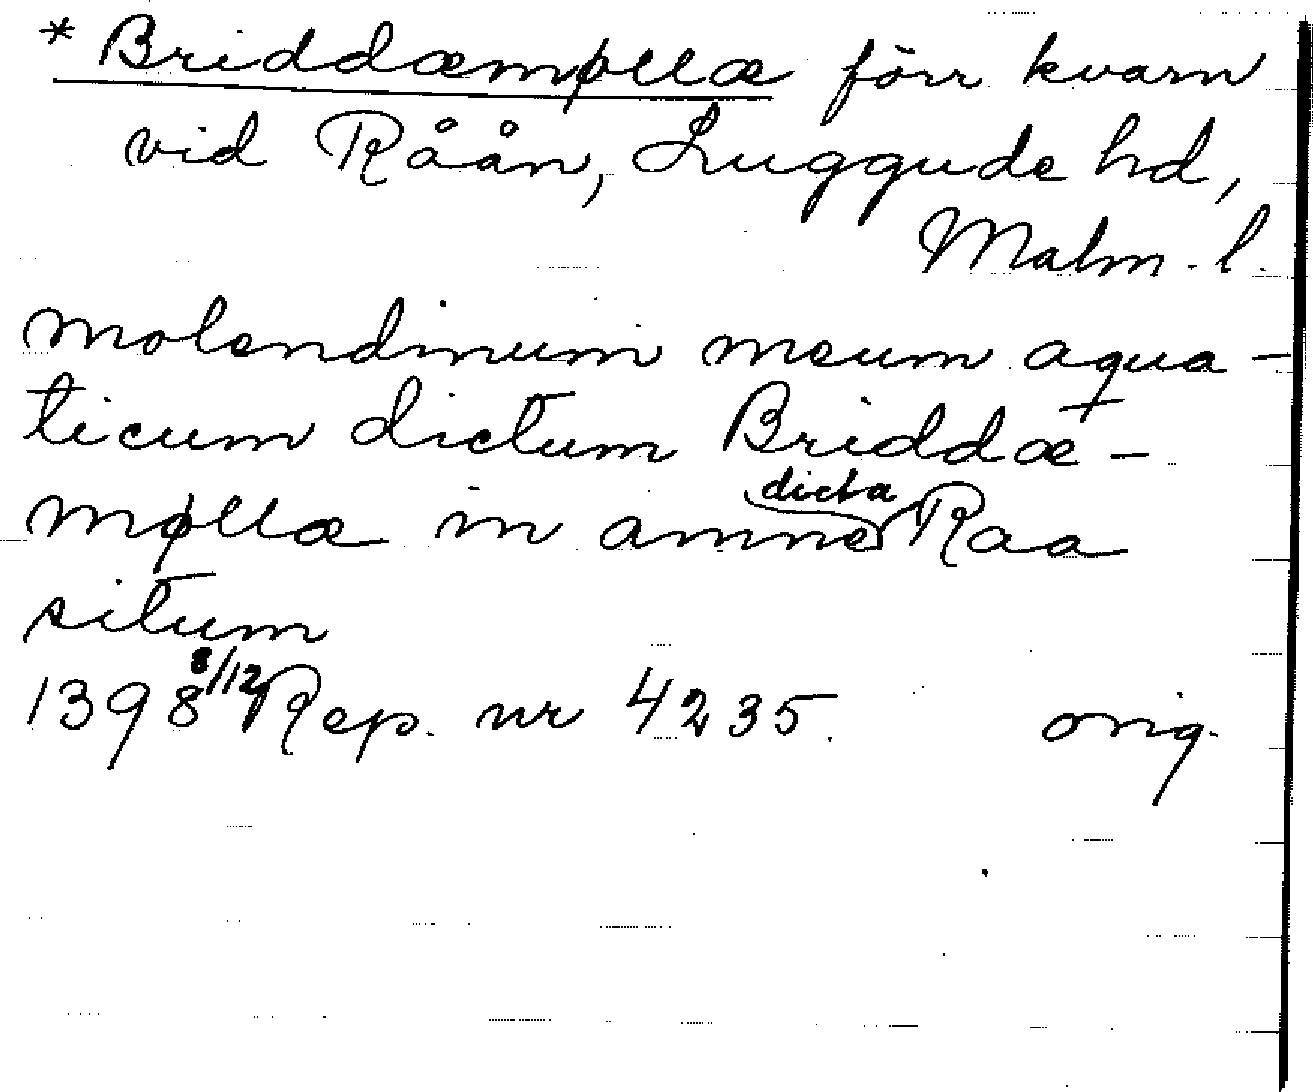 * Briddæmøllæ förr kvarn
vid Råån, Luggude hd,
Malm. l.
molendinum meum aqua-
ticum dictum Briddæ-
møllæ in amne dicta Raa
situm
1398 8/12 Rep. nr 4235. orig.